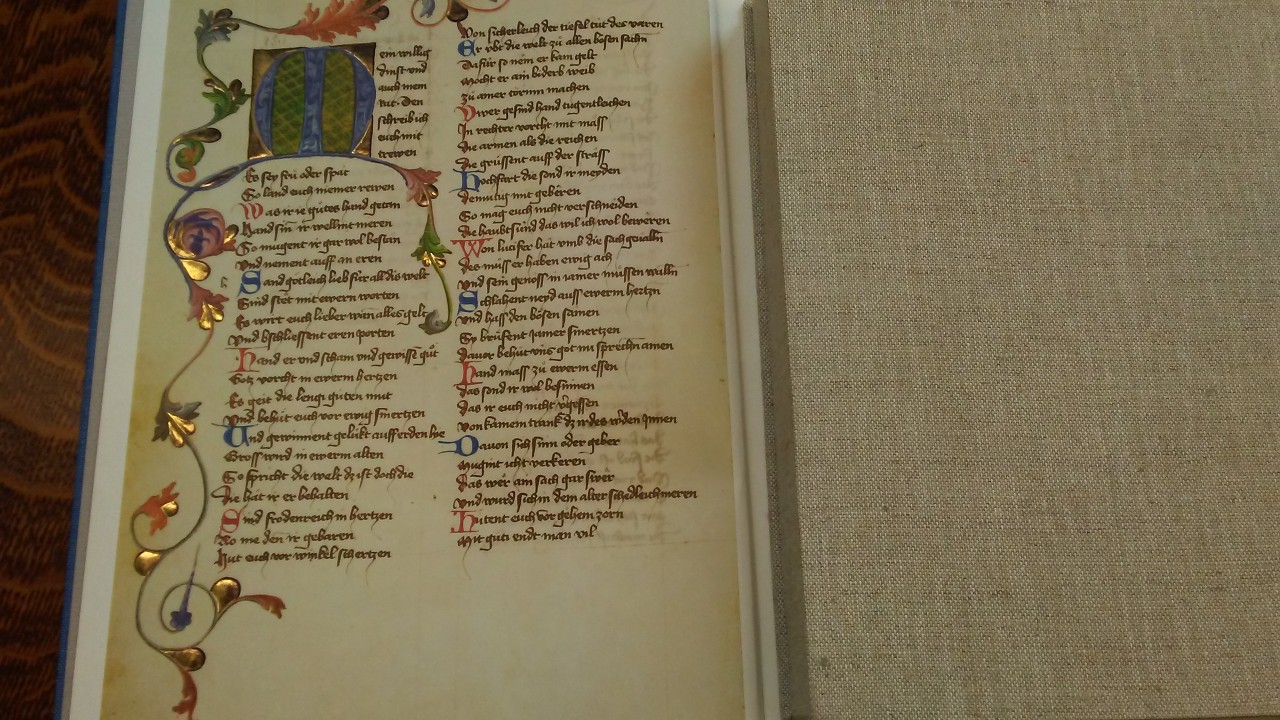 Mein willig
dinst vnd
auch mein
rat · Den
schreib ich
euch mit
trewen
Es sey frü oder spat
So land euch niemer rewen
Was ir ie gůtes hand getan
Hand sin ir wellint meren
So mugent ir gar wol bestan
Vnd nement auff an eren
Sand gotleich lieb für all dis welt
Sind stet mit ewern worten
Es wirt euch lieber wan alles gelt
Vnd bschliessent eren porten
Hand er vnd scham vnd gewissñ gůt
Gotz vorcht in ewerm hertzen
Es geit die leng guten mut
Vnd behüt euch vor ewig smertzen
Vnd gewinnent gelükt auff erden hie
Gross wird in ewerm alten
So spricht die welt dz ist doch die
Die hat ir er behalten
Sind frödenreich in hertzen
No me den ir gebaren
Hut euch vor winkel schertzen
Von sicherleich der tiefal tůt des varen
Er übt die welt zů allen bösen sachñ
Dafür so nem er kam gelt
Möcht er ain biderb weib
Zů amer törinn machen
Vwer gesind hand tugentleichen
In rechter vorcht mit mass
Die armen als die reichen
Die grüssent auff der strass
Hochfart die sond ir meyden
demutig mit gebëren
So mag euch nicht verschneiden
die haubt sünd das wil ich wol beweren
Won lucifer hat vmb die sach gevalln
des müss er haben ewig ach
vnd sein genoss in iamer müssen walln
Schlahent neyd auss ewerm hertzn
vnd hass den bösen samen
Sy brüfent iamer smertzen
davor behüt vns got nu sprechn amen
Hand mass zů ewerm essen
das sond ir wol besinnen
das ir euch nicht vgessen
von kainem trank dz ir des wden innen
Davon sich sinn oder geber
Mugint icht verkeren
Das wër ain sach gar swër
vnd wurd sich in dem alter schedleich meren
Hutent euch vor gehem zorn
Mit guti endt man vil